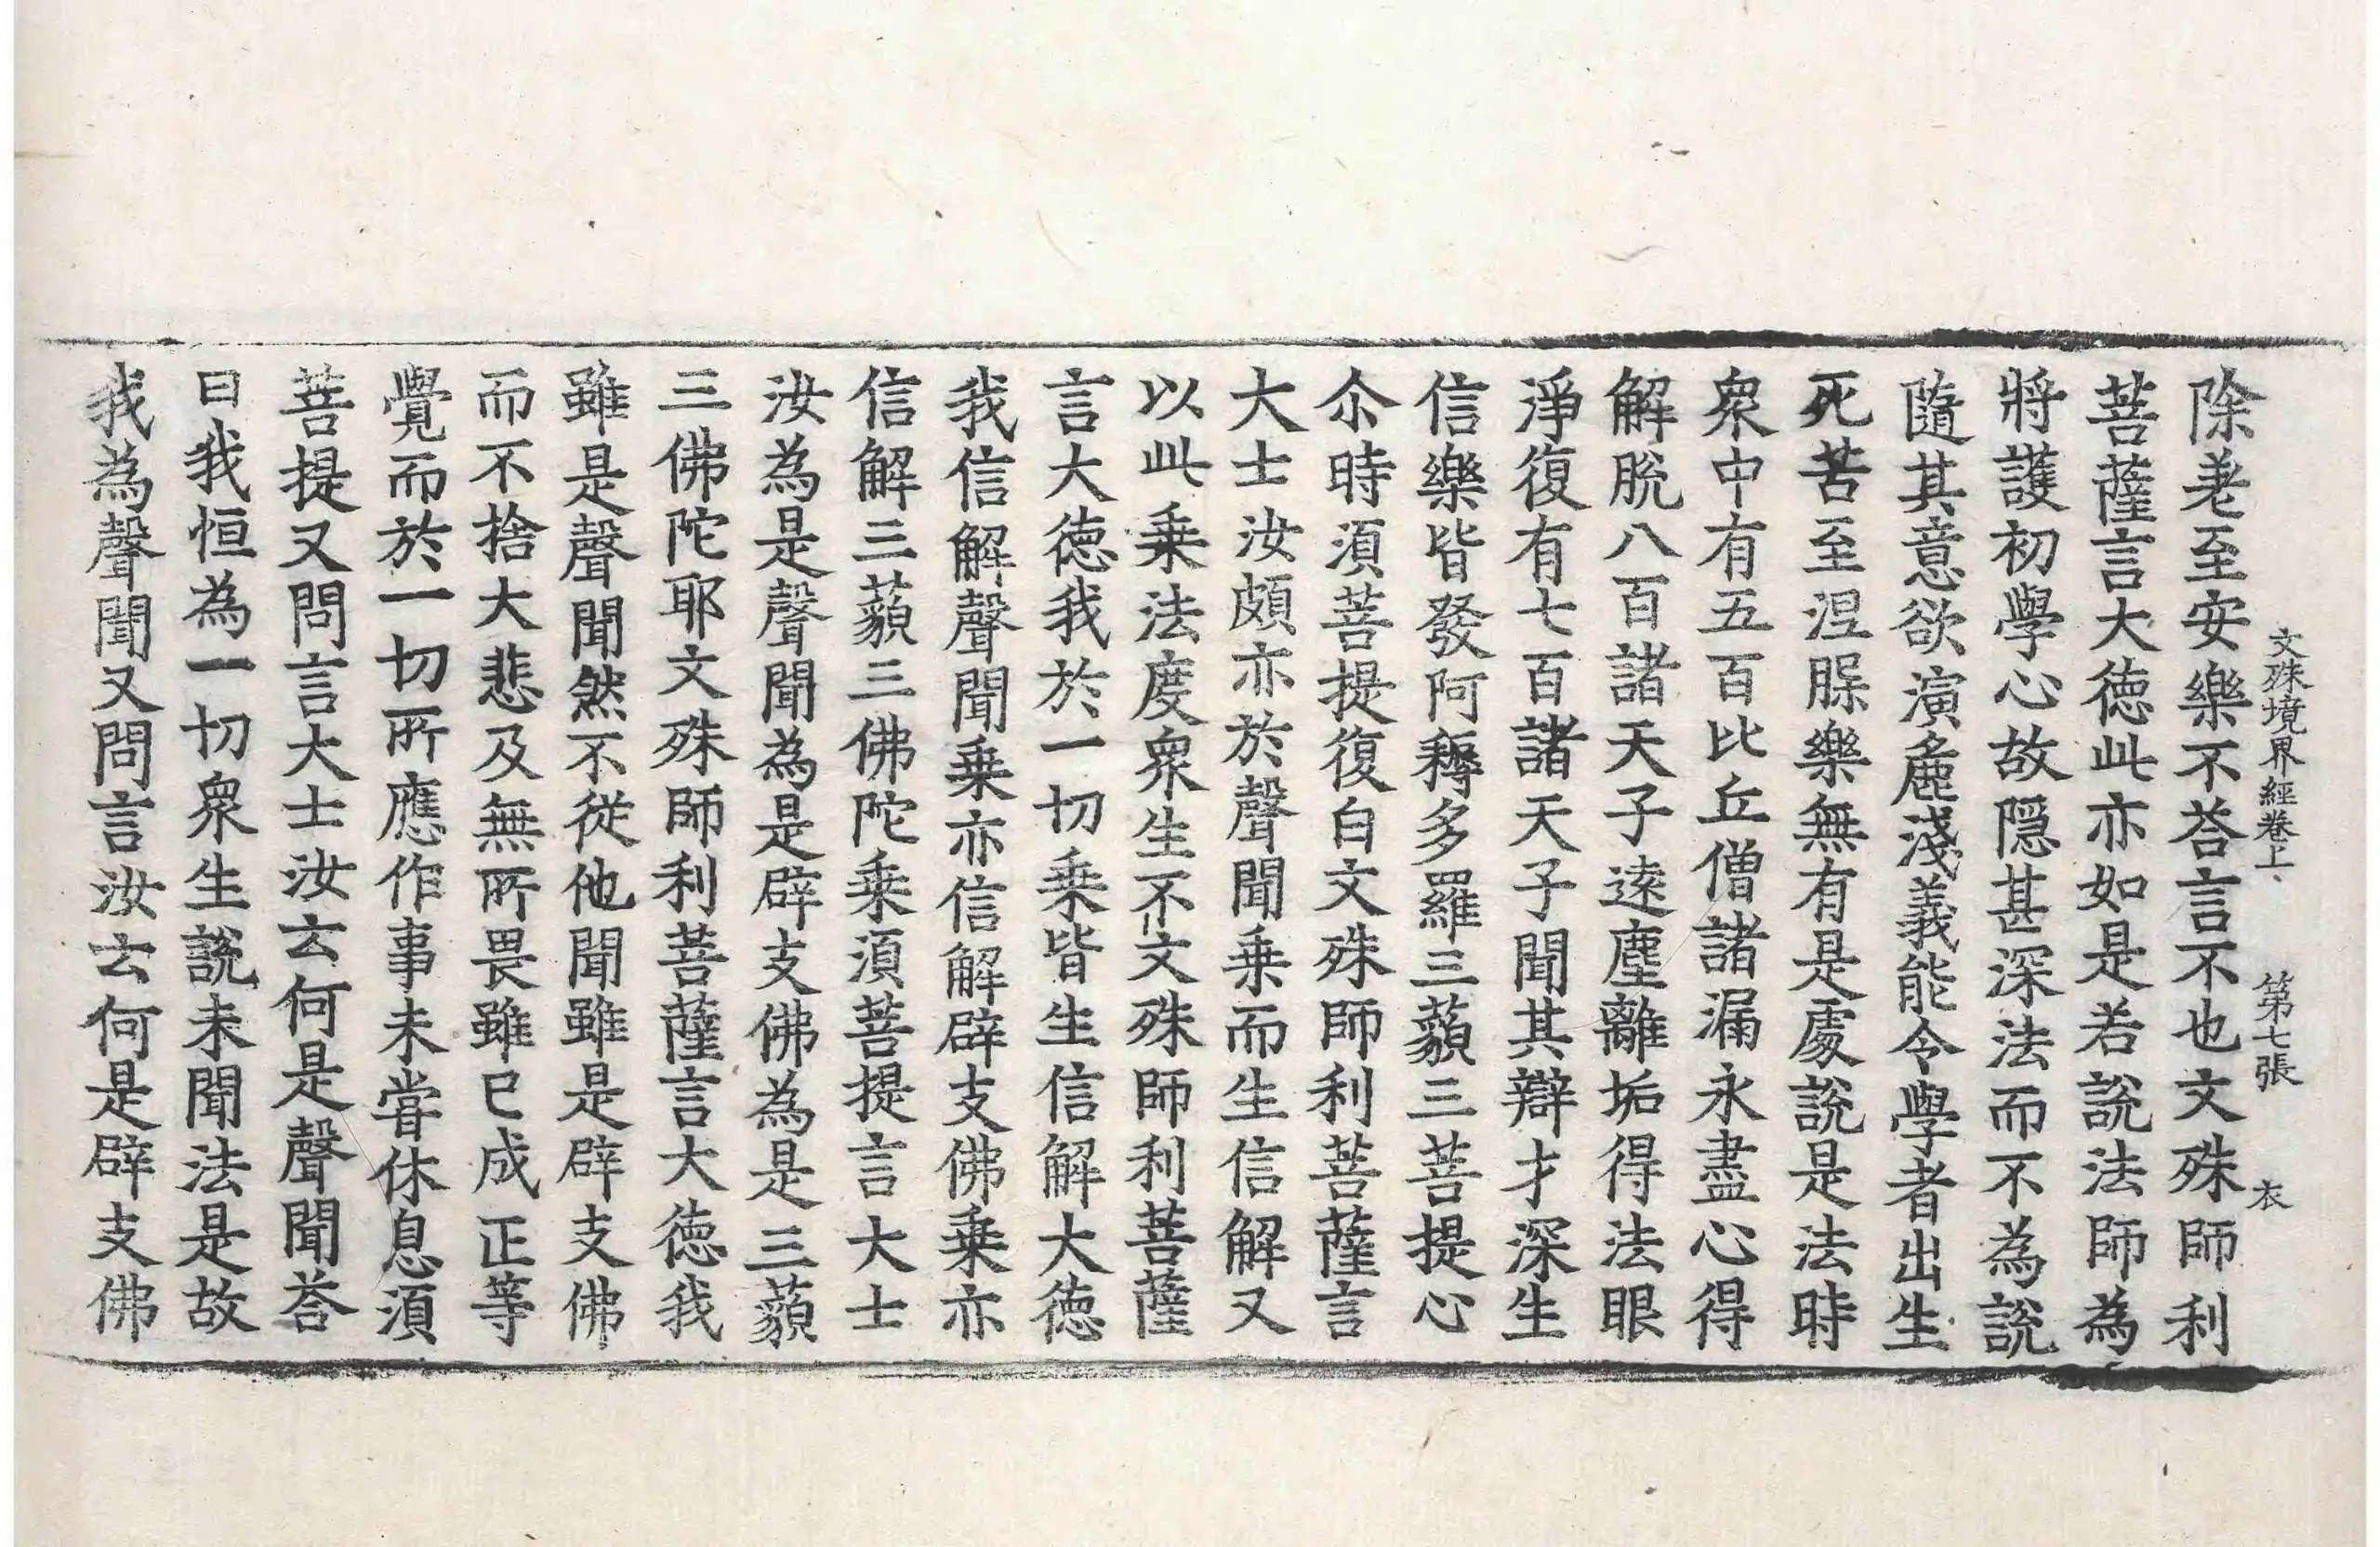 文殊境界經卷上　第七張　衣
除差至安樂不荅言不也文殊師利
菩薩言大徳此亦如是若說法師為
將護初學心故隱甚深法而不為說
隨其意欲演麁淺義能令學者出生
死苦至涅槃樂無有是處說是法時
衆中有五百比丘僧諸漏永盡心得
解脫八百諸天子遠塵離垢得法眼
淨復有七百諸天子聞其辯才深生
信樂皆發阿耨多羅三藐三菩提心
尒時須菩提復白文殊師利菩薩言
大士汝頗亦於聲聞乗而生信解又
以此乗法度衆生不文殊師利菩薩
言大徳我於一切乗皆生信解大徳
我信解聲聞乗亦信解辟支佛乗亦
信解三藐三佛陀乗須菩提言大士
汝為是聲聞為是辟支佛為是三藐
三佛陀耶文殊師利菩薩言大徳我
雖是聲聞然不從他聞雖是辟支佛
而不捨大悲及無所畏雖已成正等
覺而於一切所應作事未甞休息須
菩提又問言大士汝云何是聲聞荅
曰我恒為一切衆生說未聞法是故
我為聲聞又問言汝云何是辟支佛